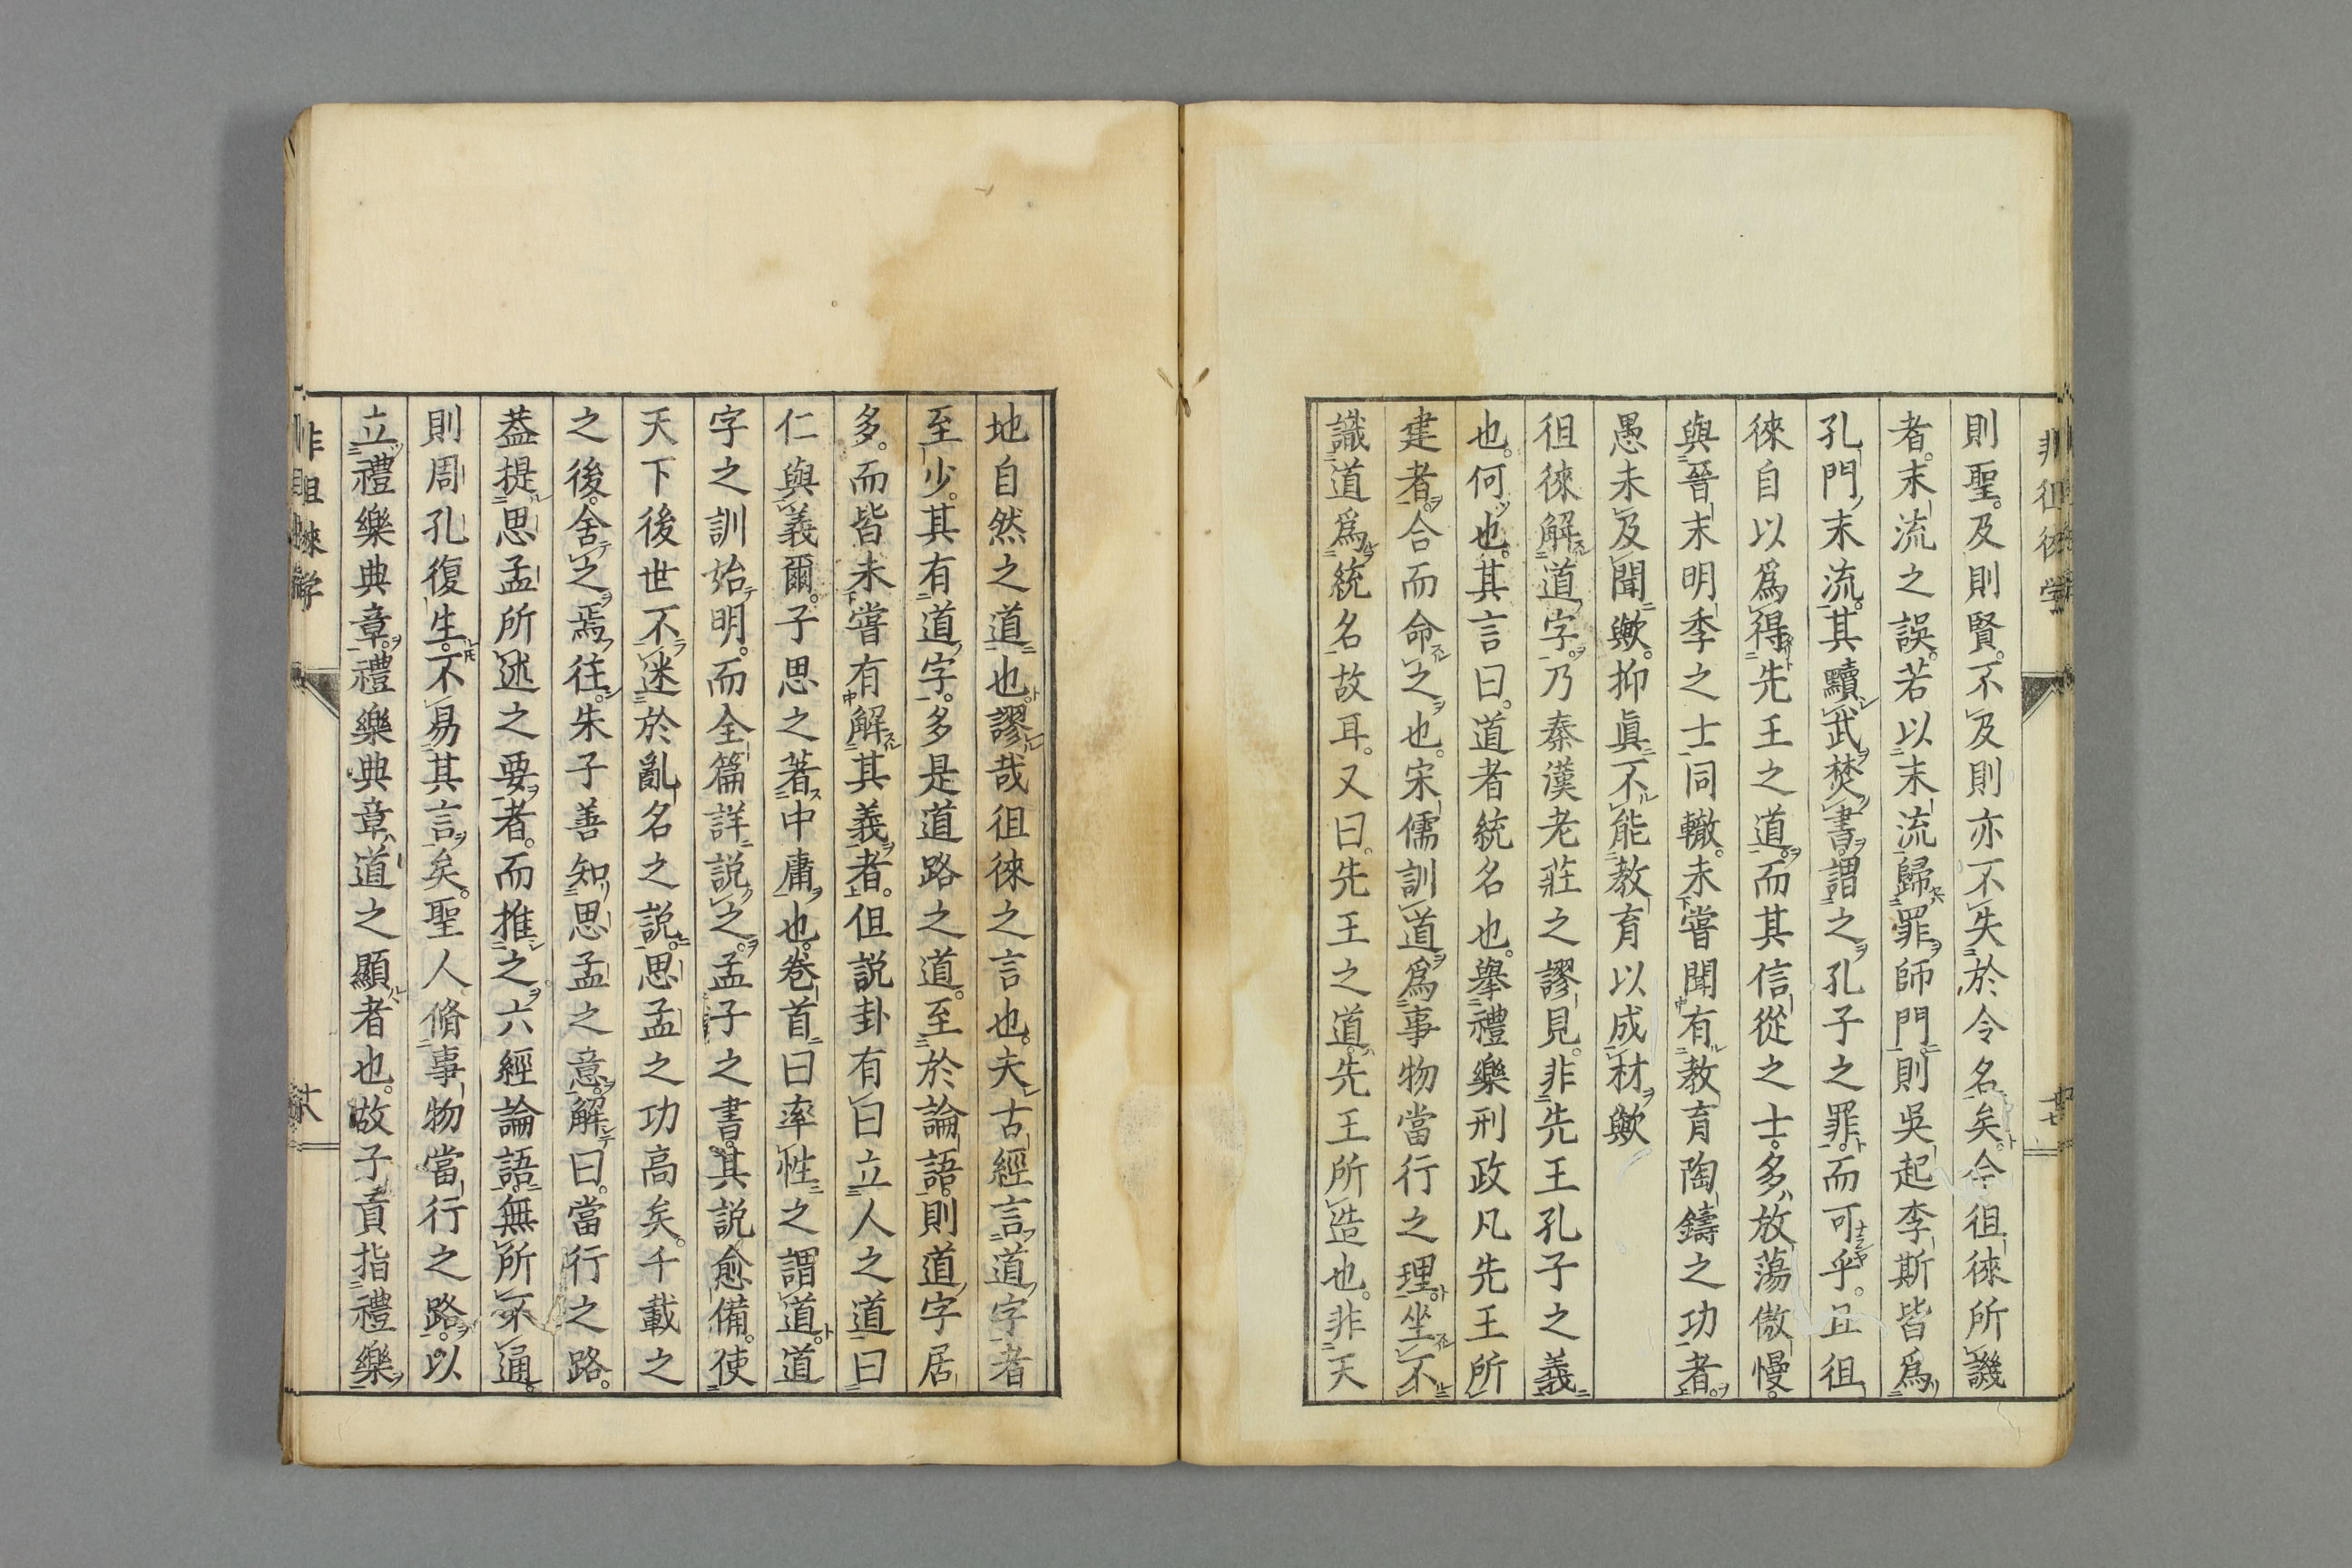 則聖。及則賢。不及則亦不失於令名矣。今徂徠所譏
者。末流之誤。若以末流歸罪師門。則吳起李斯皆爲
孔門末流。其黷武焚書。謂之孔子之罪。而可乎。且徂
徠自以爲得先王之道。而其信從之士。多放蕩傲慢。
與晉末明季之士同轍。未嘗聞有教育陶鑄之功者。
愚未及聞歟。抑眞不能教育以成材歟
徂徠解道字。乃秦漢老莊之謬見。非先王孔子之義
也。何也。其言曰。道者統名也。擧禮樂刑政凡先王所
建者。合而命之也。宋儒訓道爲事物當行之理。坐不
識道爲統名故耳。又曰。先王之道。先王所造也。非天
地自然之道也。謬哉徂徠之言也。夫古經言道字者
至少。其有道字。多是道路之道。至於論語。則道字居
多。而皆未嘗有解其義者。但説卦有曰立人之道曰
仁與義爾。子思之著中庸也。卷首曰率性之謂道。道
字之訓始明。而全篇詳説之。孟子之書。其説愈備。使
天下後世不迷於亂名之説。思孟之功高矣。千載之
之後。舍之焉往。朱子善知思孟之意。解曰。當行之路。
葢提思孟所述之要者。而推之六經論語。無所不通。
則周孔復生。不易其言矣。聖人脩事物當行之路。以
立禮樂典章。禮樂典章。道之顯者也。故子貢指禮樂
非徂徠学